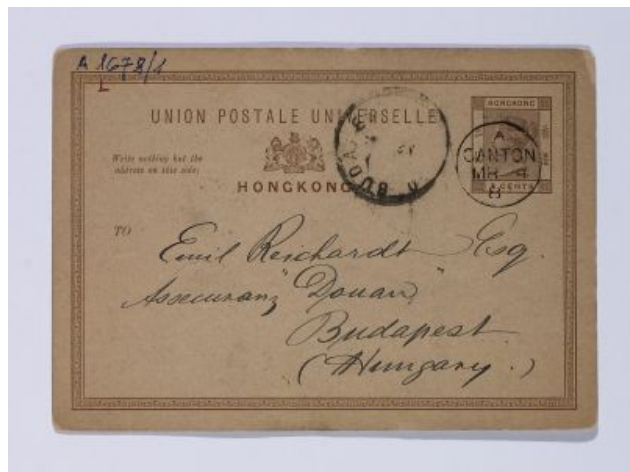 A 1678/1
L
UNION POSTALE UNIVERSELLE
HONGKONG
Write nothing but the
address on this side;
HONGKONG
CENTS
A
CANTON
MR 4
8
BUDAPE
TO
Emil Reichardt Esq.
Assecuranz "Donau"
Budapest
(Hungary.)